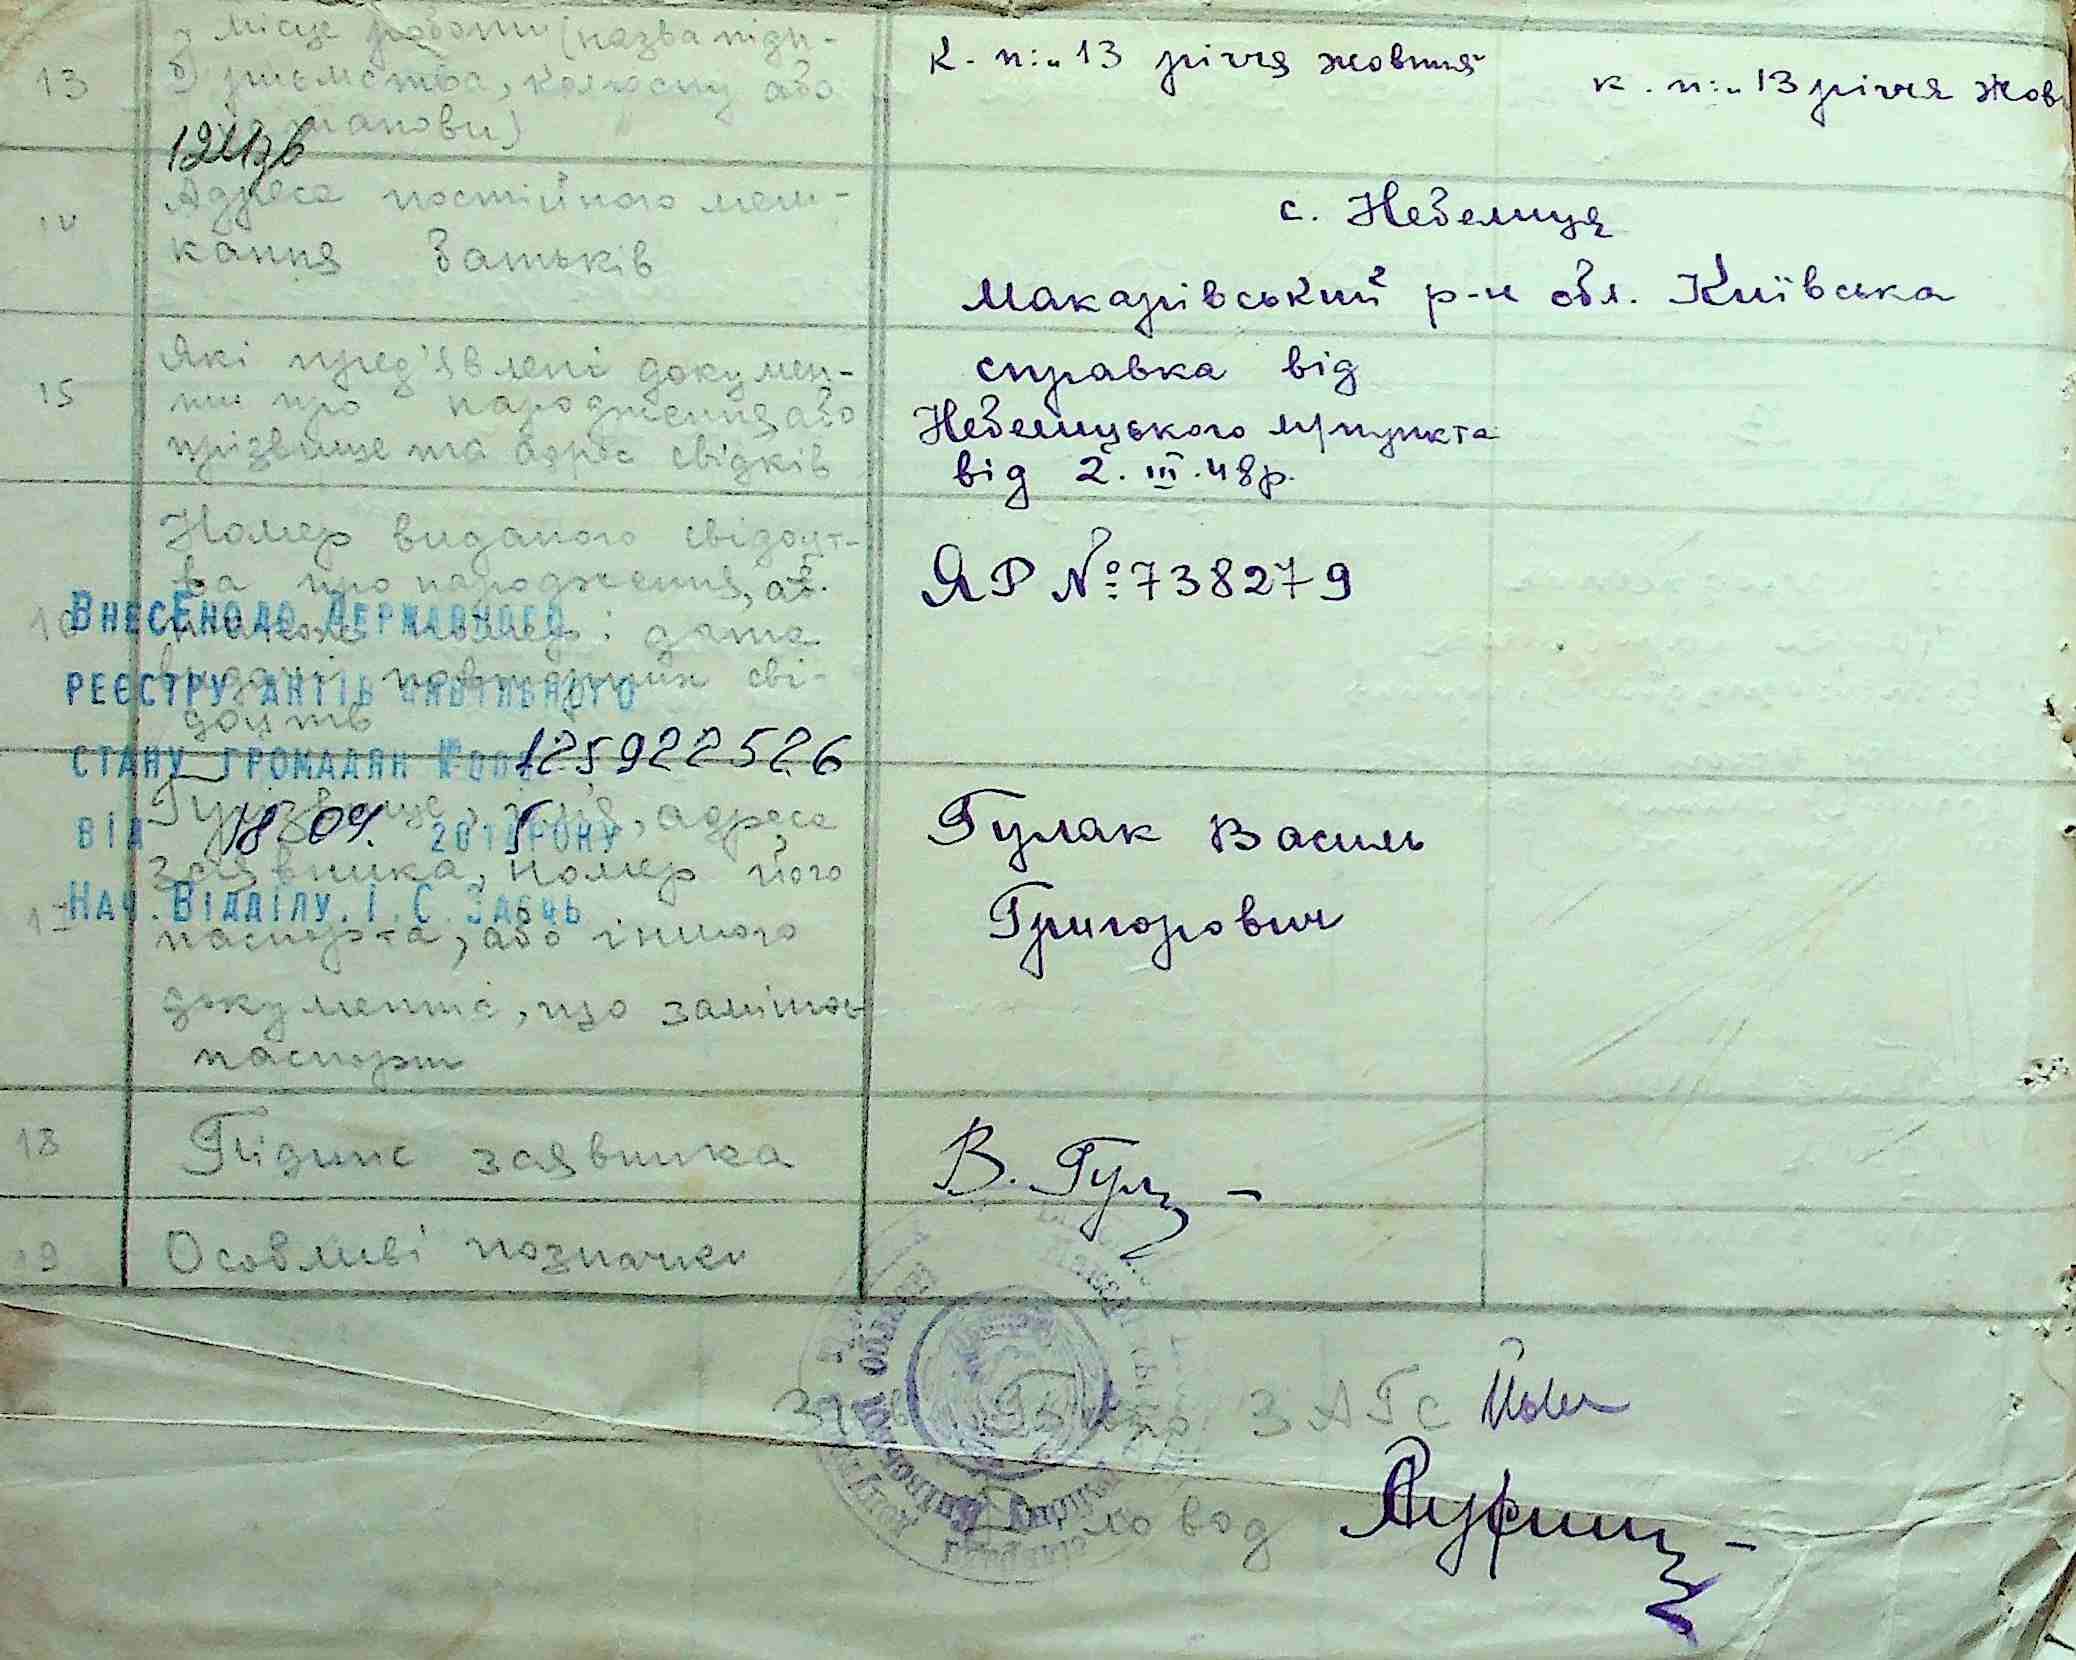 13
місце роботи (назва підп-
риємства, колгоспу або
установи)
к-п: „13 річчя жовтня"
к-п: „13 річчя жов
14
Адреса постійного меш-
кання батьків
с. Небелиця
Макарівський р-н обл. Київська
15
Які пред'явлені докумен-
ти про народження або
прізвище та адрес свідків
справка від
Небелицького м/пункта
від 2. III. 48р.
16
Номер виданого свідоцт-
ва про народження,
номер і дата
видачі повторних сві-
доцтв
ЯР №738279
Внесено до Державного
реєстру актів цивільного
стану громадян 125922526
від 18 04. 201 року
Нач. Відділу. І. С. Заєць
17
Прізвище, ім'я, адреса
заявника, номер його
паспорта, або іншого
документа, що замінює
паспорт
Гулак Василь
Григорович
18
Підпис заявника
В. Гул
19
Особливі позначки
ЗАГС